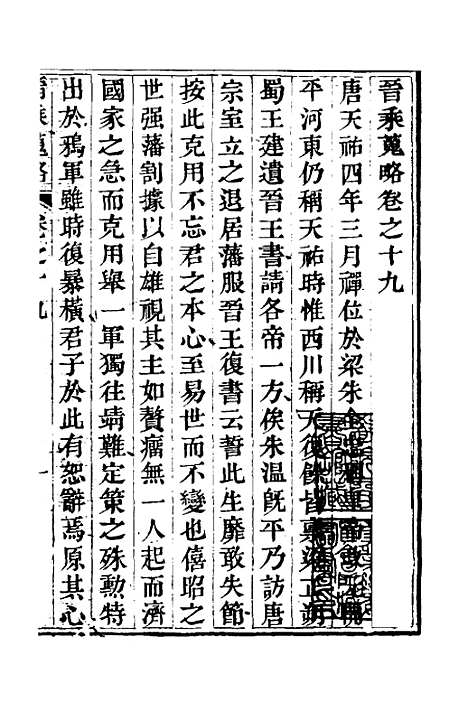 晉乘蒐略卷之十九
唐天祐四年三月禪位於梁朱全忠
平河東仍稱天祐時惟西川稱天復餘皆稟梁正朔
蜀王建遺晉王書請各帝一方俟朱溫旣平乃訪唐
宗室立之退居藩服晉王復書云誓此生靡敢失節
按此克用不忘君之本心至易世而不變也僖昭之
世强藩割據以自雄視其主如贅瘤無一人起而濟
國家之急而克用舉一軍獨往靖難定策之殊勳特
出於鴉軍雖時復暴橫君子於此有恕辭焉原其心
晉乘蒐略 卷之十九 一